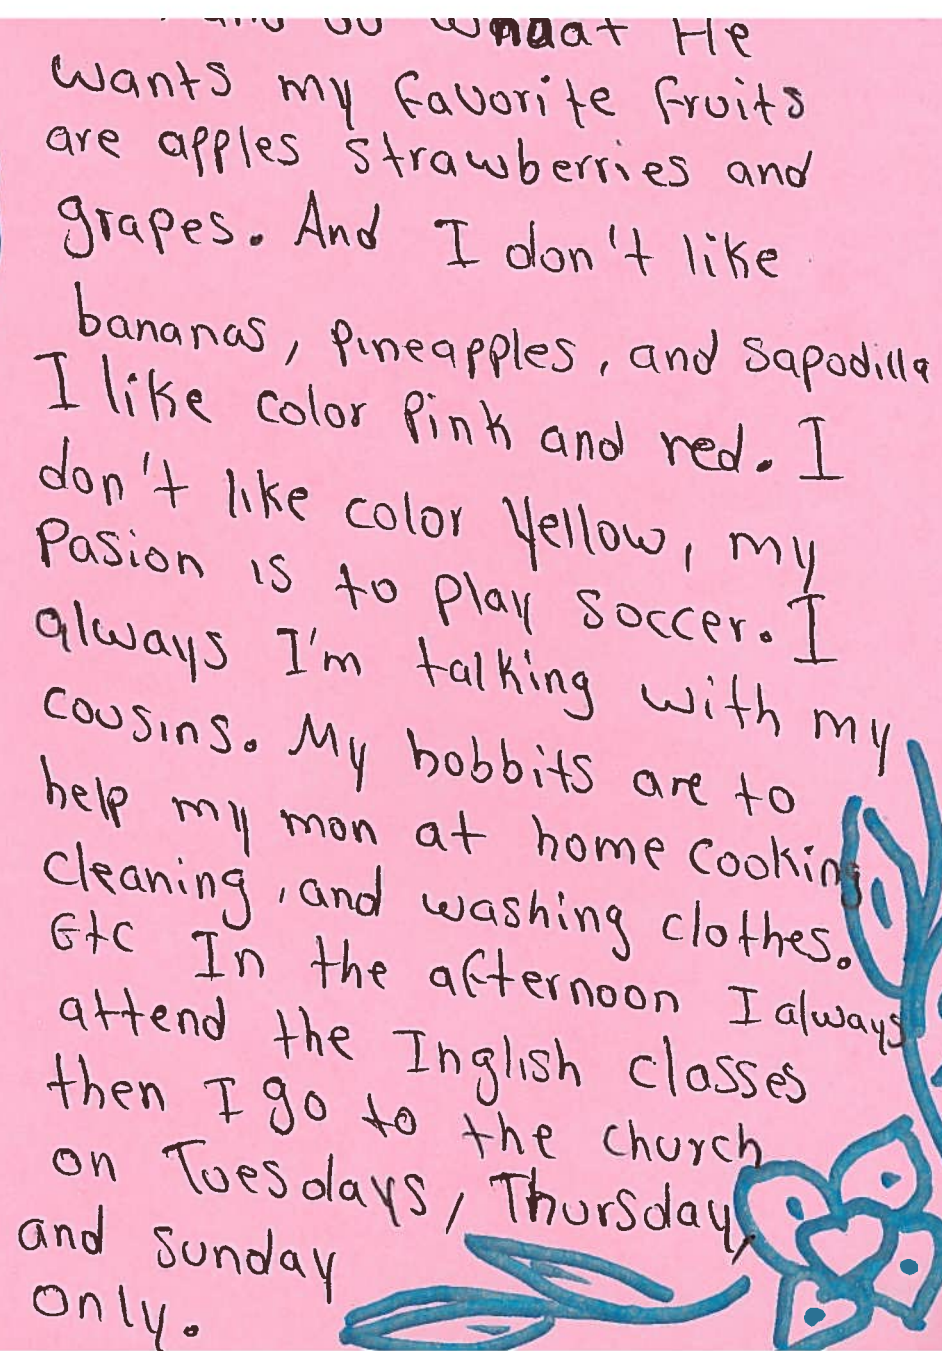 and do whaat He
wants my favorite fruits
are apples strawberries and
grapes. And I don't like
bananas, pineapples, and sapodilla
I like color Pink and red. I
don't like color Yellow, my
Pasion is to play soccer. I
always I'm talking with my
cousins. My hobbits are to
help my mon at home cooking
cleaning, and washing clothes.
Etc In the afternoon I always
attend the Inglish classes
then I go to the church
on Tuesdays, Thursday,
and sunday
only.